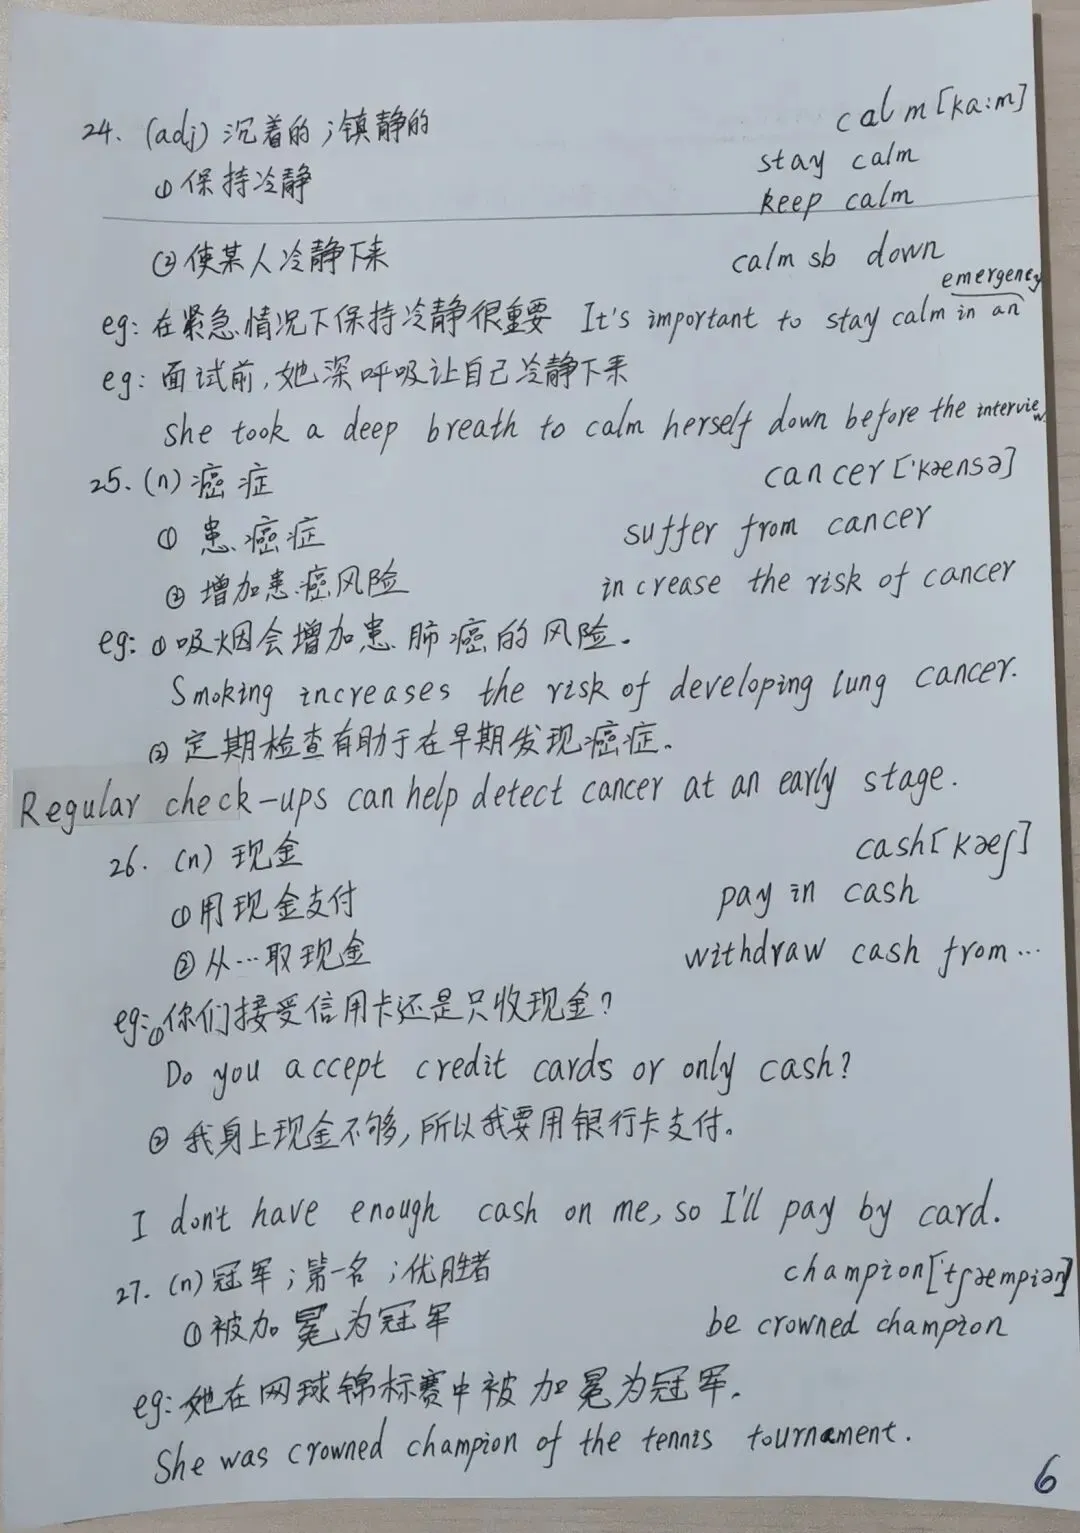 24. (adj) 沉着的；镇静的 calm [ka:m]
① 保持冷静 stay calm
keep calm
② 使某人冷静下来 calm sb down
eg: 在紧急情况下保持冷静很重要 It's important to stay calm in an emergency
eg: 面试前,她深呼吸让自己冷静下来
she took a deep breath to calm herself down before the interview.
25. (n) 癌症 cancer ['kænsə]
① 患癌症 suffer from cancer
② 增加患癌风险 increase the risk of cancer
eg: ① 吸烟会增加患肺癌的风险。
Smoking increases the risk of developing lung cancer.
② 定期检查有助于在早期发现癌症.
Regular check-ups can help detect cancer at an early stage.
26. (n) 现金 cash [kæʃ]
① 用现金支付 pay in cash
② 从…取现金 withdraw cash from …
eg: ① 你们接受信用卡还是只收现金?
Do you accept credit cards or only cash?
② 我身上现金不够,所以我要用银行卡支付。
I don't have enough cash on me, so I'll pay by card.
27. (n) 冠军；第一名；优胜者 champion ['tʃæmpiən]
① 被加冕为冠军 be crowned champion
eg: 她在网球锦标赛中被加冕为冠军.
She was crowned champion of the tennis tournament.
6